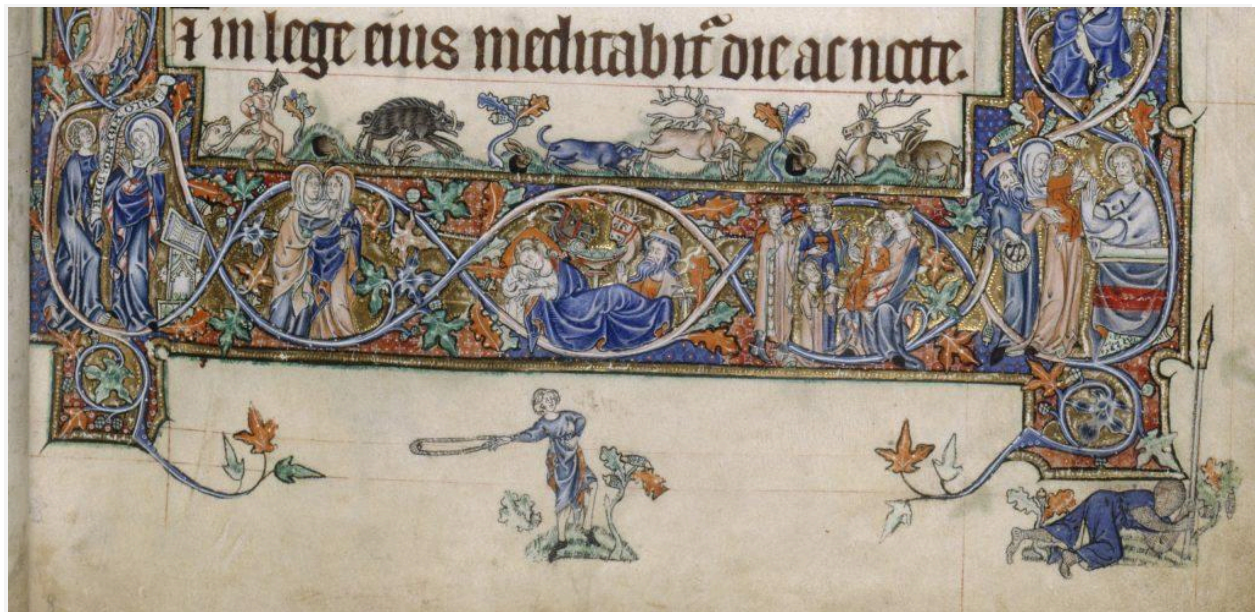 ⁊ in lege eius meditabit᷑ die ac nocte.